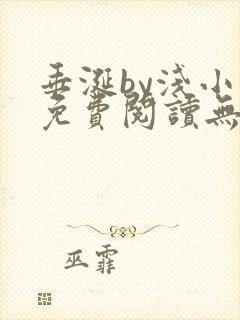 垂涎by浅小
免費閱讀無
巫霏